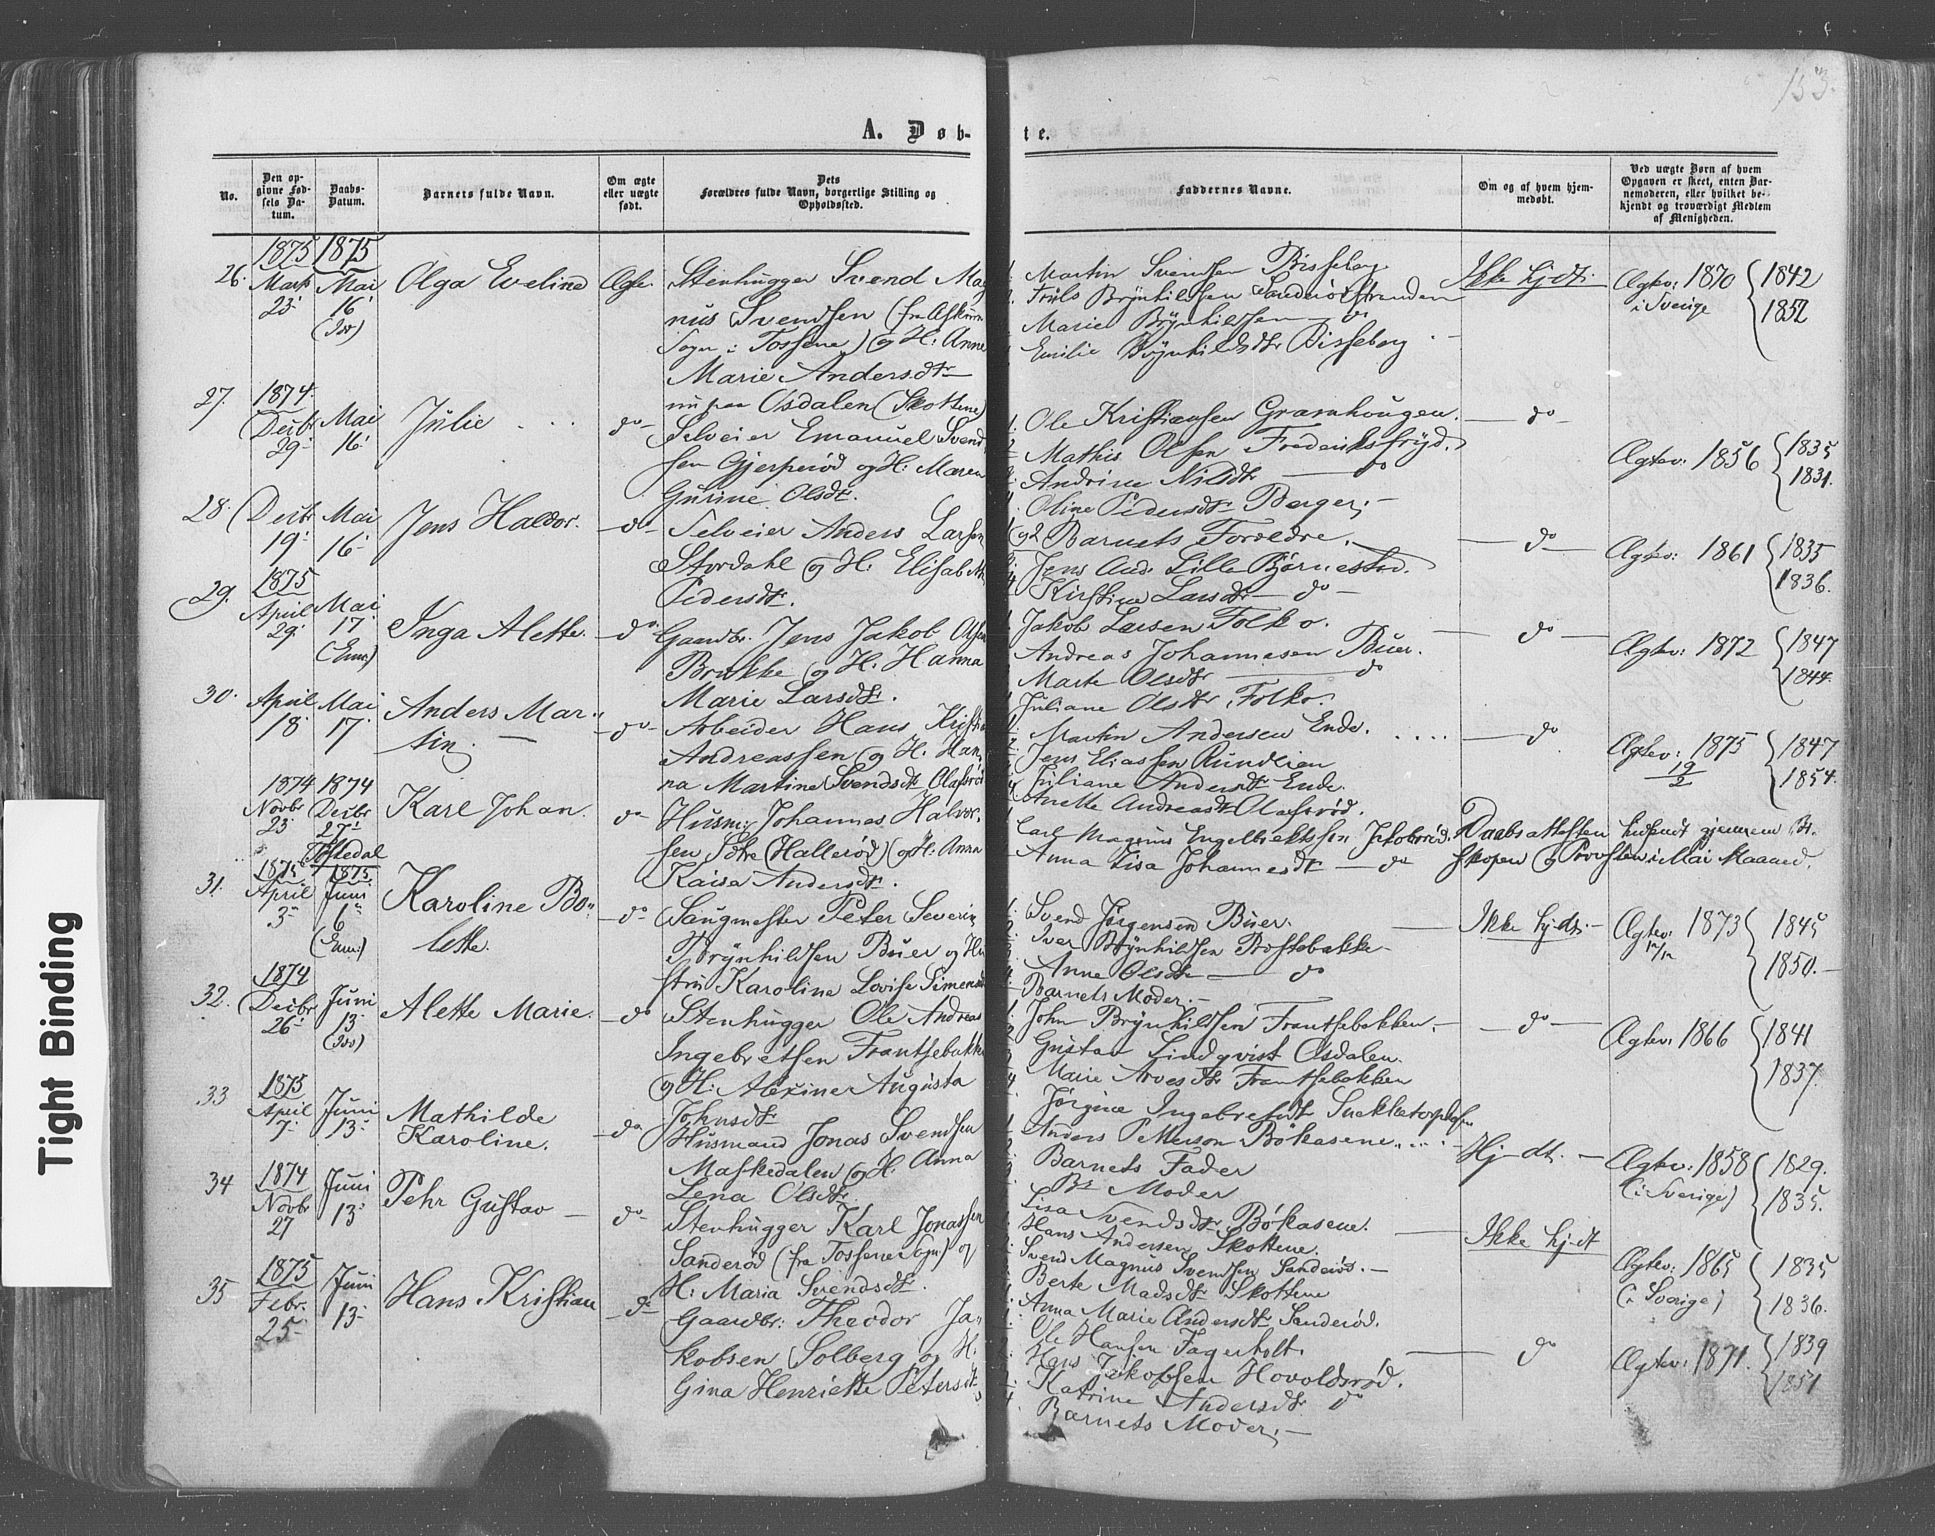 153.
A. Døb-
te.
No.
Den op-
givne Fød-
sels Da-
tum.
Daabs-
Datum.
Barnets fulde Navn.
Om ægte
eller uægte
født.
Dets
Forældres fulde Navn, borgerlige Stilling og
Opholdssted.
Faddernes Navne.
Om og af hvem hjem-
medøbt.
Ved uægte Børn af hvem
Opgaven er skeet, enten Bar-
nemoderen, eller hvilket be-
kjendt og troværdigt Medlem
af Menigheden.
26.
1875
Marts
23.
1875
Mai
16.
Olga Eveline
Ægte.
Stenhugger Svend Mag
nus Svendsen (fra
Sogn i Tossene) og H. Anne
Marie Andersdtr
nu paa Osdalen (Skottene)
Martin Svendsen Bisseberg
Brynhildsen
Marie Brynhildsen do
Emilie Brynhildsdtr Bisseberg
Ikke hj-dt.
Ægtev: 1870
i Sverige
1842
1852
27.
1874.
Decbr
29.
Mai
16.
Julie
do
Selveier Emanuel Svend
sen Gjerperød og H. Maren
Gurine Olsdtr.
1. Ole Kristiansen Gramhougen.
2 Mathis Olsen Frederiksfryd.
Andrine Nilsdtr do
Oline Pedersdtr Berger.
do
Ægtev: 1856
1835
1831.
28.
Decbr
19.
Mai
16.
Jens Haldor.
do
Selveier Anders Larsen
Stordahl og H. Elisabeth
Pedersdtr.
1 og 2 Barnets Forældre.
Jens And. Lille Bjørnestad.
Kirstine Larsdtr do
do
Ægtev: 1861
1835
1836.
29.
1875
April
29.
Mai
17.
Inga Alette.
do
Gaardbr. Jens Jakob Olsen
Brække og H. Hanna
Marie Larsdtr.
Jakob Larsen Folko.
Andreas Johannesen Buer.
Marte Olsdtr do
Juliane Olsdtr Folko.
do
Ægtev: 1872
1847
1844.
30.
April
18.
Mai
17.
Anders Mar-
tin.
do
Arbeider Hans Kristian
Andreassen og H. Han-
na Martine Svendsdtr Olafsrød
Martin Andersen Ende.
Jens Eliassen
Juliane Andersdtr Ende.
Anette Andreasdtr Olafsrød.
do
Ægtev: 1875
19
2
1847
1854.
1874
Novbr
23
1874
Decbr
27.
Karl Johan.
do
Husm. Johannes Halvor-
sen (Hallerød) og H. Anna
Kaisa Andersdtr.
Carl Magnus Engelbrektssen
Anna Lisa Johannesdtr do
Daabsattesten gjennem Bi-
skopen og Provsten i Mai Maaned.
31.
1875
April
3.
1875
Juni
6
Karoline Bo-
lette.
do
Saugmester Peter Severin
Brynhildsen Buer og Hu
stru Karoline Lovise Simensdtr
Svend Jørgensen Buer.
Iver Brynhildsen
Anne Olsdtr do
Barnets Moder.
Ikke hj-dt.
Ægtev: 1873
1845
1850.
32.
1874
Decbr
26.
Juni
13.
Alette Marie.
do
Stenhugger Ole Andreas
Ingebretsen Frantsebakke
og H. Alexine Augusta
Johnsdtr
John Brynhildsen Frantsebakken.
Gustav Lindqvist Osdalen.
Marie Arvesdtr Frantsebakken
Jørgine Ingebretsdtr
do
Ægtev: 1866
1841
1837.
33
1875
April
7.
Juni
13.
Mathilde
Karoline.
do
Husmand Jonas Svendsen
Maskedalen og H. Anna
Lena Olsdtr.
Anders Petterson Bökasene
Barnets Fader
Bs Moder
Lisa Svendsdtr Bökasene.
Hj-dt.
Ægtev: 1858
(i Sverige)
1829.
1835.
34
1874
Novbr
27
Juni
13.
Pehr Gustav
do
Stenhugger Karl Jonassen
Sanderød (fra Tossene Sogn) og
H. Maria Svendsdtr.
Hans Andersen Skottene.
Svend Magnus Svendsen Sanderød.
Berte Madsdtr Skottene
Anna Marie Andersdtr Sanderød.
Ikke hj-dt
Ægtev: 1865
(i Sverige)
1835
1836.
35
1875
Febr.
25.
Juni
13.
Hans Kristian
do
Gaardbr. Theodor Ja-
kobsen Solberg og H.
Gina Henriette Petersdtr
Ole Hansen Fagerholt.
Hans Jakobsen Hovoldsrød.
Katrine Andersdtr do
Barnets Moder.
do
Ægtev: 1871.
1839
1851
Tight Binding